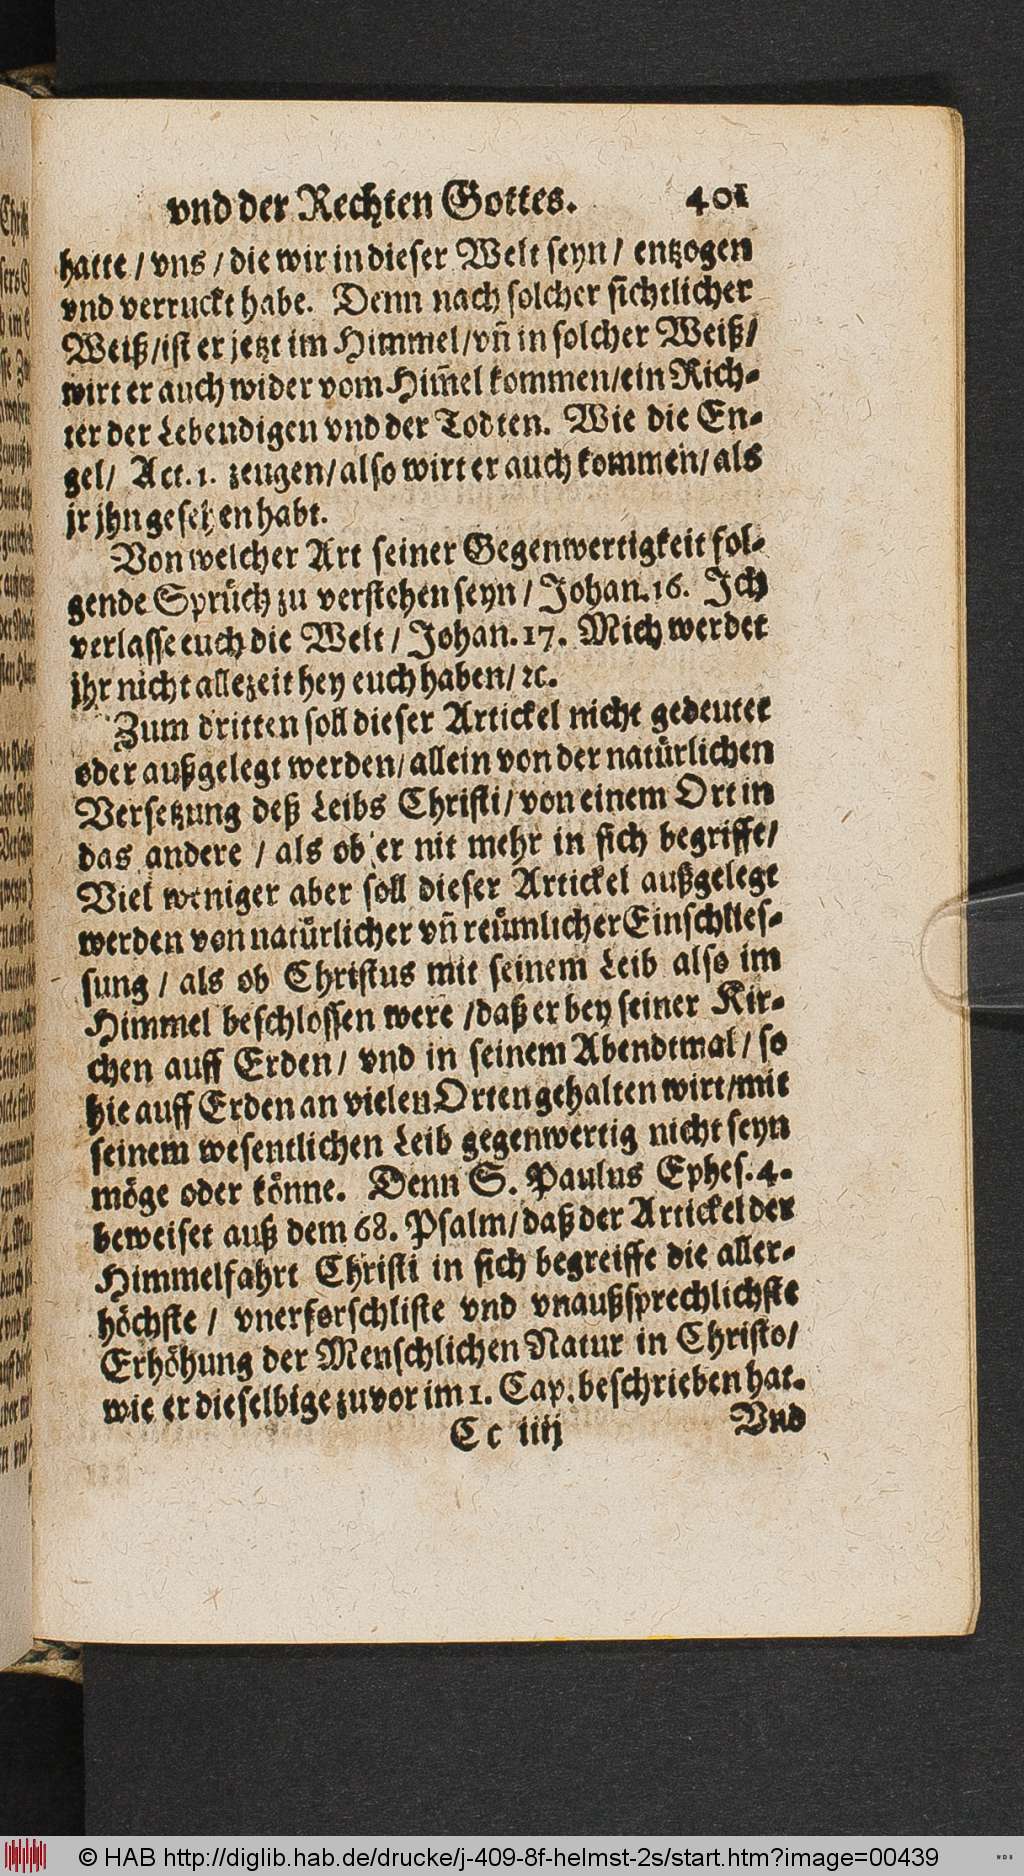 vnd der Rechten Gottes. 401
hatte / vns / die wir in dieser Welt seyn / entzogen
vnd verruckt habe. Denn nach solcher sichtlicher
Weiß / ist er jetzt im Himmel / vñ in solcher Weiß /
wirt er auch wider vom Him̃el kommen / ein Rich-
ter der Lebendigen vnd der Todten. Wie die En-
gel / Act. 1. zeugen / also wirt er auch kommen / als
jr jhn gesehen habt.
Von welcher Art seiner Gegenwertigkeit fol-
gende Sprüch zu verstehen seyn / Johan. 16. Ich
verlasse euch die Welt / Johan. 17. Mich werdet
jhr nicht allezeit hey euch haben / ꝛc.
Zum dritten soll dieser Artickel nicht gedeutet
oder außgelegt werden / allein von der natürlichen
Versetzung deß Leibs Christi / von einem Ort in
das andere / als ob er nit mehr in sich begriffe /
Viel weniger aber soll dieser Artickel außgelegt
werden von natürlicher vñ reümlicher Einschlies-
sung / als ob Christus mit seinem Leib also im
Himmel beschlossen were / daß er bey seiner Kir-
chen auff Erden / vnd in seinem Abendtmal / so
hie auff Erden an vielen Orten gehalten wirt / mit
seinem wesentlichen Leib gegenwertig nicht seyn
möge oder könne. Denn S. Paulus Ephes. 4.
beweiset auß dem 68. Psalm / daß der Artickel der
Himmelfahrt Christi in sich begreiffe die aller-
höchste / vnerforschliste vnd vnaußsprechlichste
Erhöhung der Menschlichen Natur in Christo /
wie er dieselbige zuvor im 1. Cap. beschrieben hat.
Cc iiij Vnd
© HAB http://diglib.hab.de/drucke/j-409-8f-helmst-2s/start.htm?image=00439